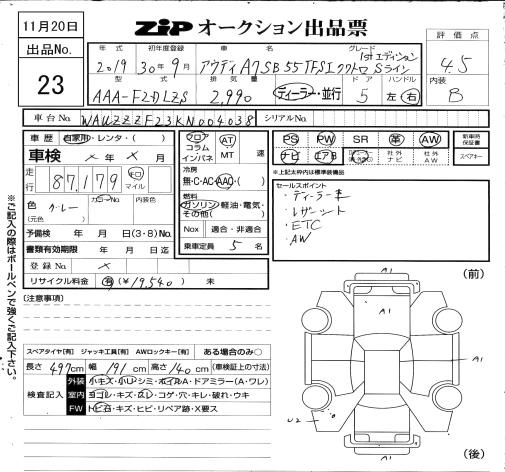 11月20日
ZIP オークション出品票
出品No. 23
年式 初年度登録 車名 グレード 評価点
2019 30年9月 アウディ A7SB 55TFSI クワトロ 1stエディション Sライン 4.5
型式 排気量 ドア ハンドル 内装
AAA-F2DLZS 2,990 ディーラー・並行 5 左・右 B
車台No. WAUZZZF23KN004038 シリアルNo.
車歴 自家用・レンタ・( )
車検 × 年 × 月
走行 87,179 km マイル
色 グレー カラーNo. 内装色
(元色)
予備検 年 月 日(3・8)No.
書類有効期限 年 月 日迄
登録No. ×
リサイクル料金 有 (¥19540) 未
フロア コラム インパネ AT MT 速
冷房 無・C・AC・AAC・( )
燃料 ガソリン・軽油・電気・その他( )
Nox 適合・非適合
乗車定員 5 名
PS PW SR 革 AW 新車時保証書
ナビ エアB 社外ナビ 社外AW スペアキー
※上記太枠内は標準装備品
セールスポイント
・ディーラー車
・レザーシート
・ETC
・AW
(注意事項)
スペアタイヤ[有] ジャッキ工具[有] AWロックキー[有] ある場合のみ○
長さ 497cm 幅 191cm 高さ 140cm (車検証上の寸法)
検査記入 外装 小キズ・小凹・シミ・ホイルA・ドアミラー(A・ワレ)
室内 ヨゴレ・キズ・スレ・コゲ・穴・キレ・破れ・ウキ
FW トビ石・キズ・ヒビ・リペア跡・X要ス
(前)
A1
A1
A1
U2
A1
(後)
※ご記入の際はボールペンで強くご記入下さい。